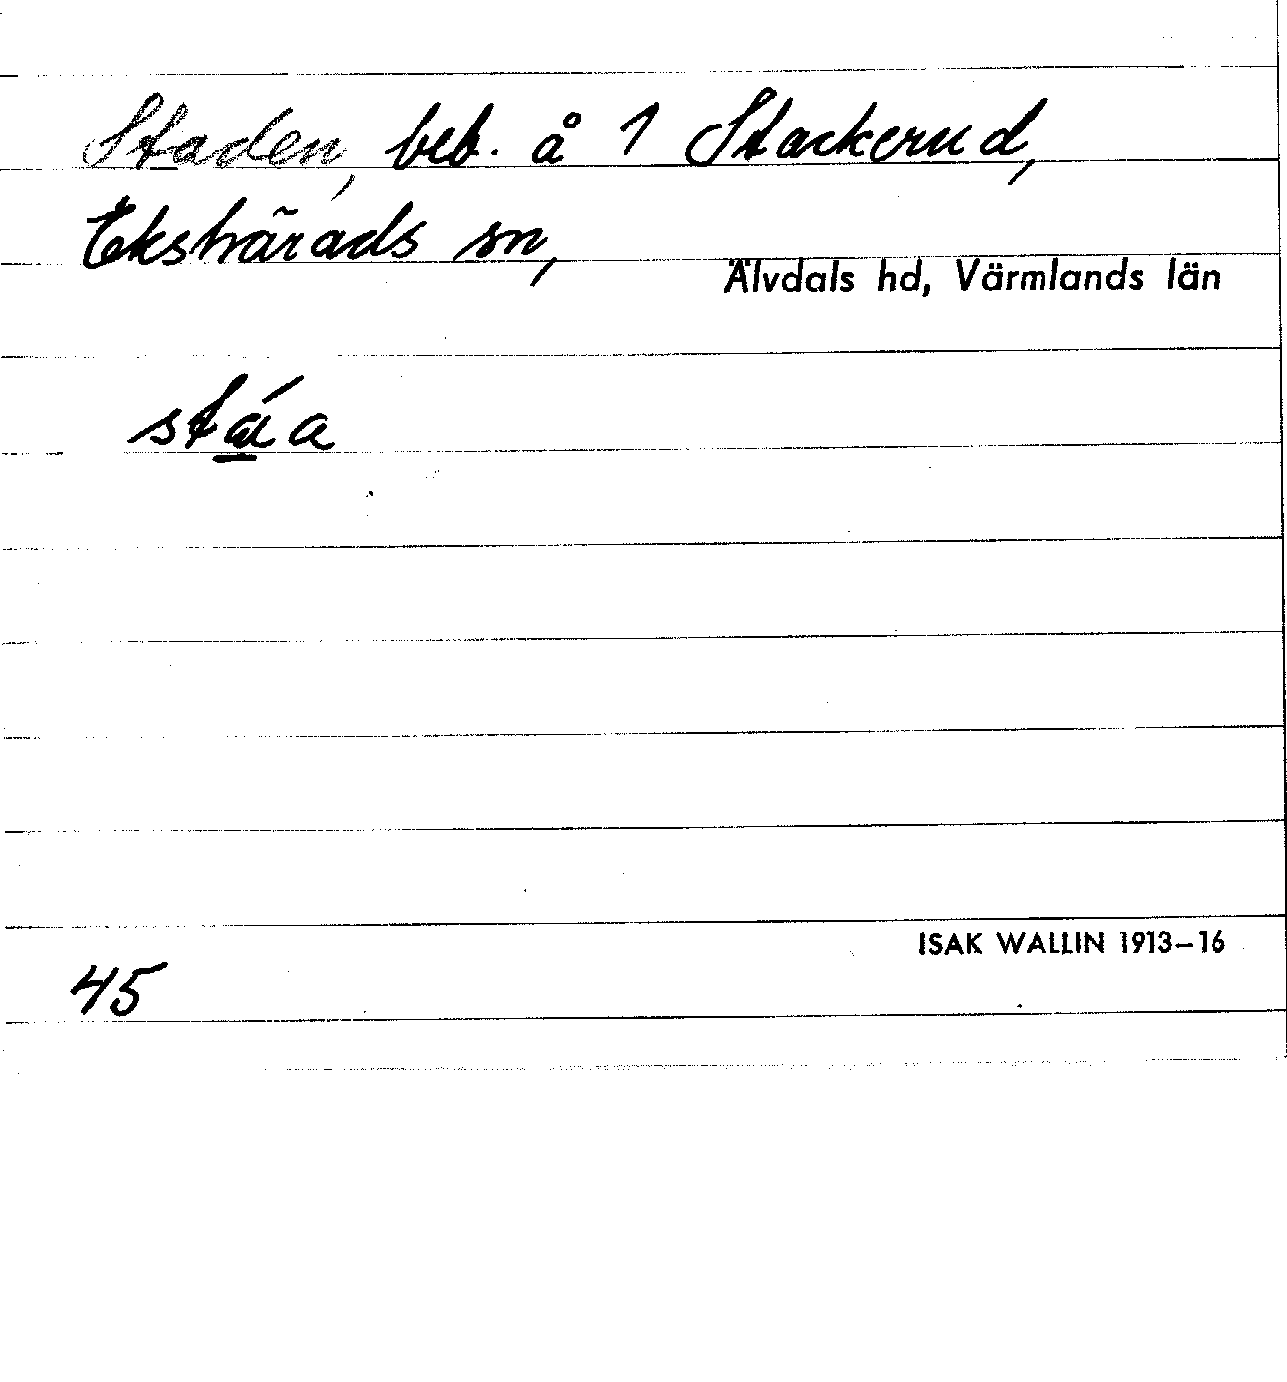 Staden, beb. å 1 Stackerud,
Ekshärads sn,
Älvdals hd, Värmlands län
stá̲a
ISAK WALLIN 1913–16
45